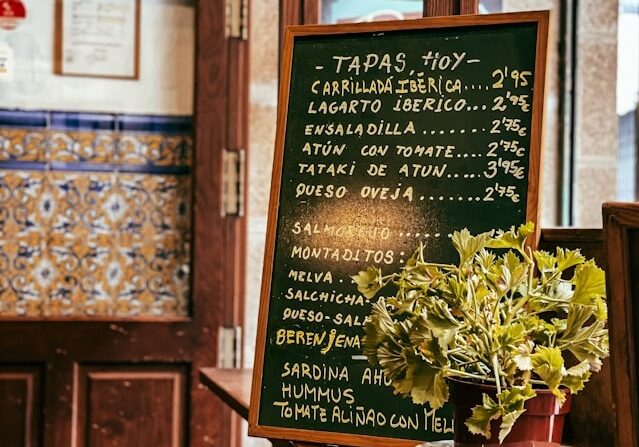 - TAPAS, HOY -
CARRILLADA IBÉRICA.... 2'95
LAGARTO IBERICO... 2'95€
ENSALADILLA ....... 2'75€
ATÚN CON TOMATE.... 2'75€
TATAKI DE ATUN..... 3'95€
QUESO OVEJA ....... 2'75€
SALMOREJO .....
MONTADITOS:
MELVA ..
SALCHICHA-
QUESO-SALM
BERENJENA
SARDINA AHU
HUMMUS
TOMATE ALIÑAO CON MEL